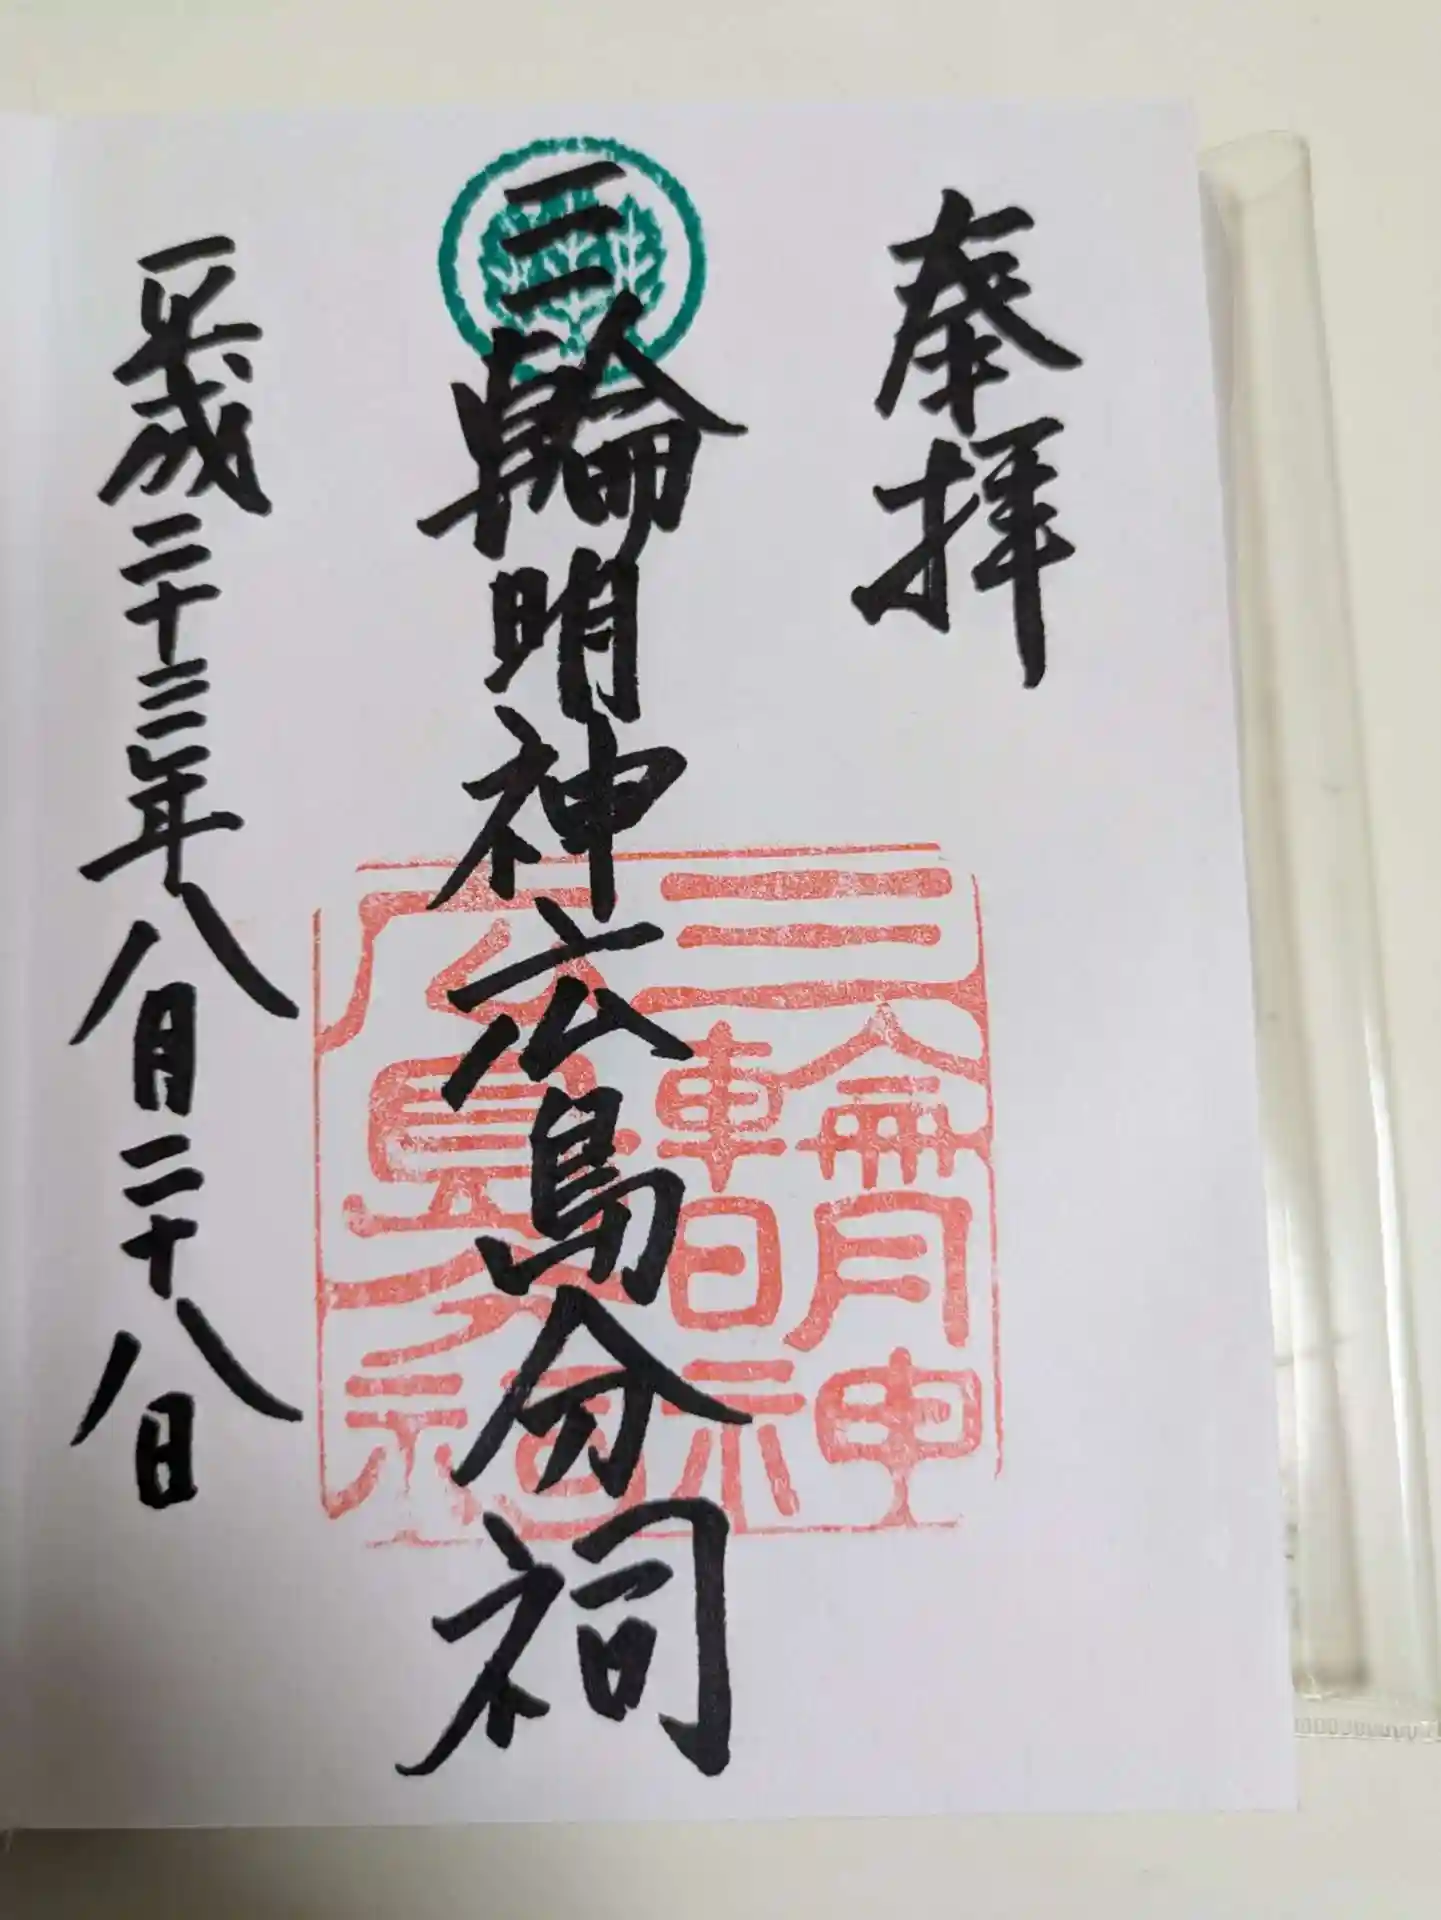 奉拝
三輪明神広島分祠
三輪明神
広島分祠
平成二十三年八月二十八日